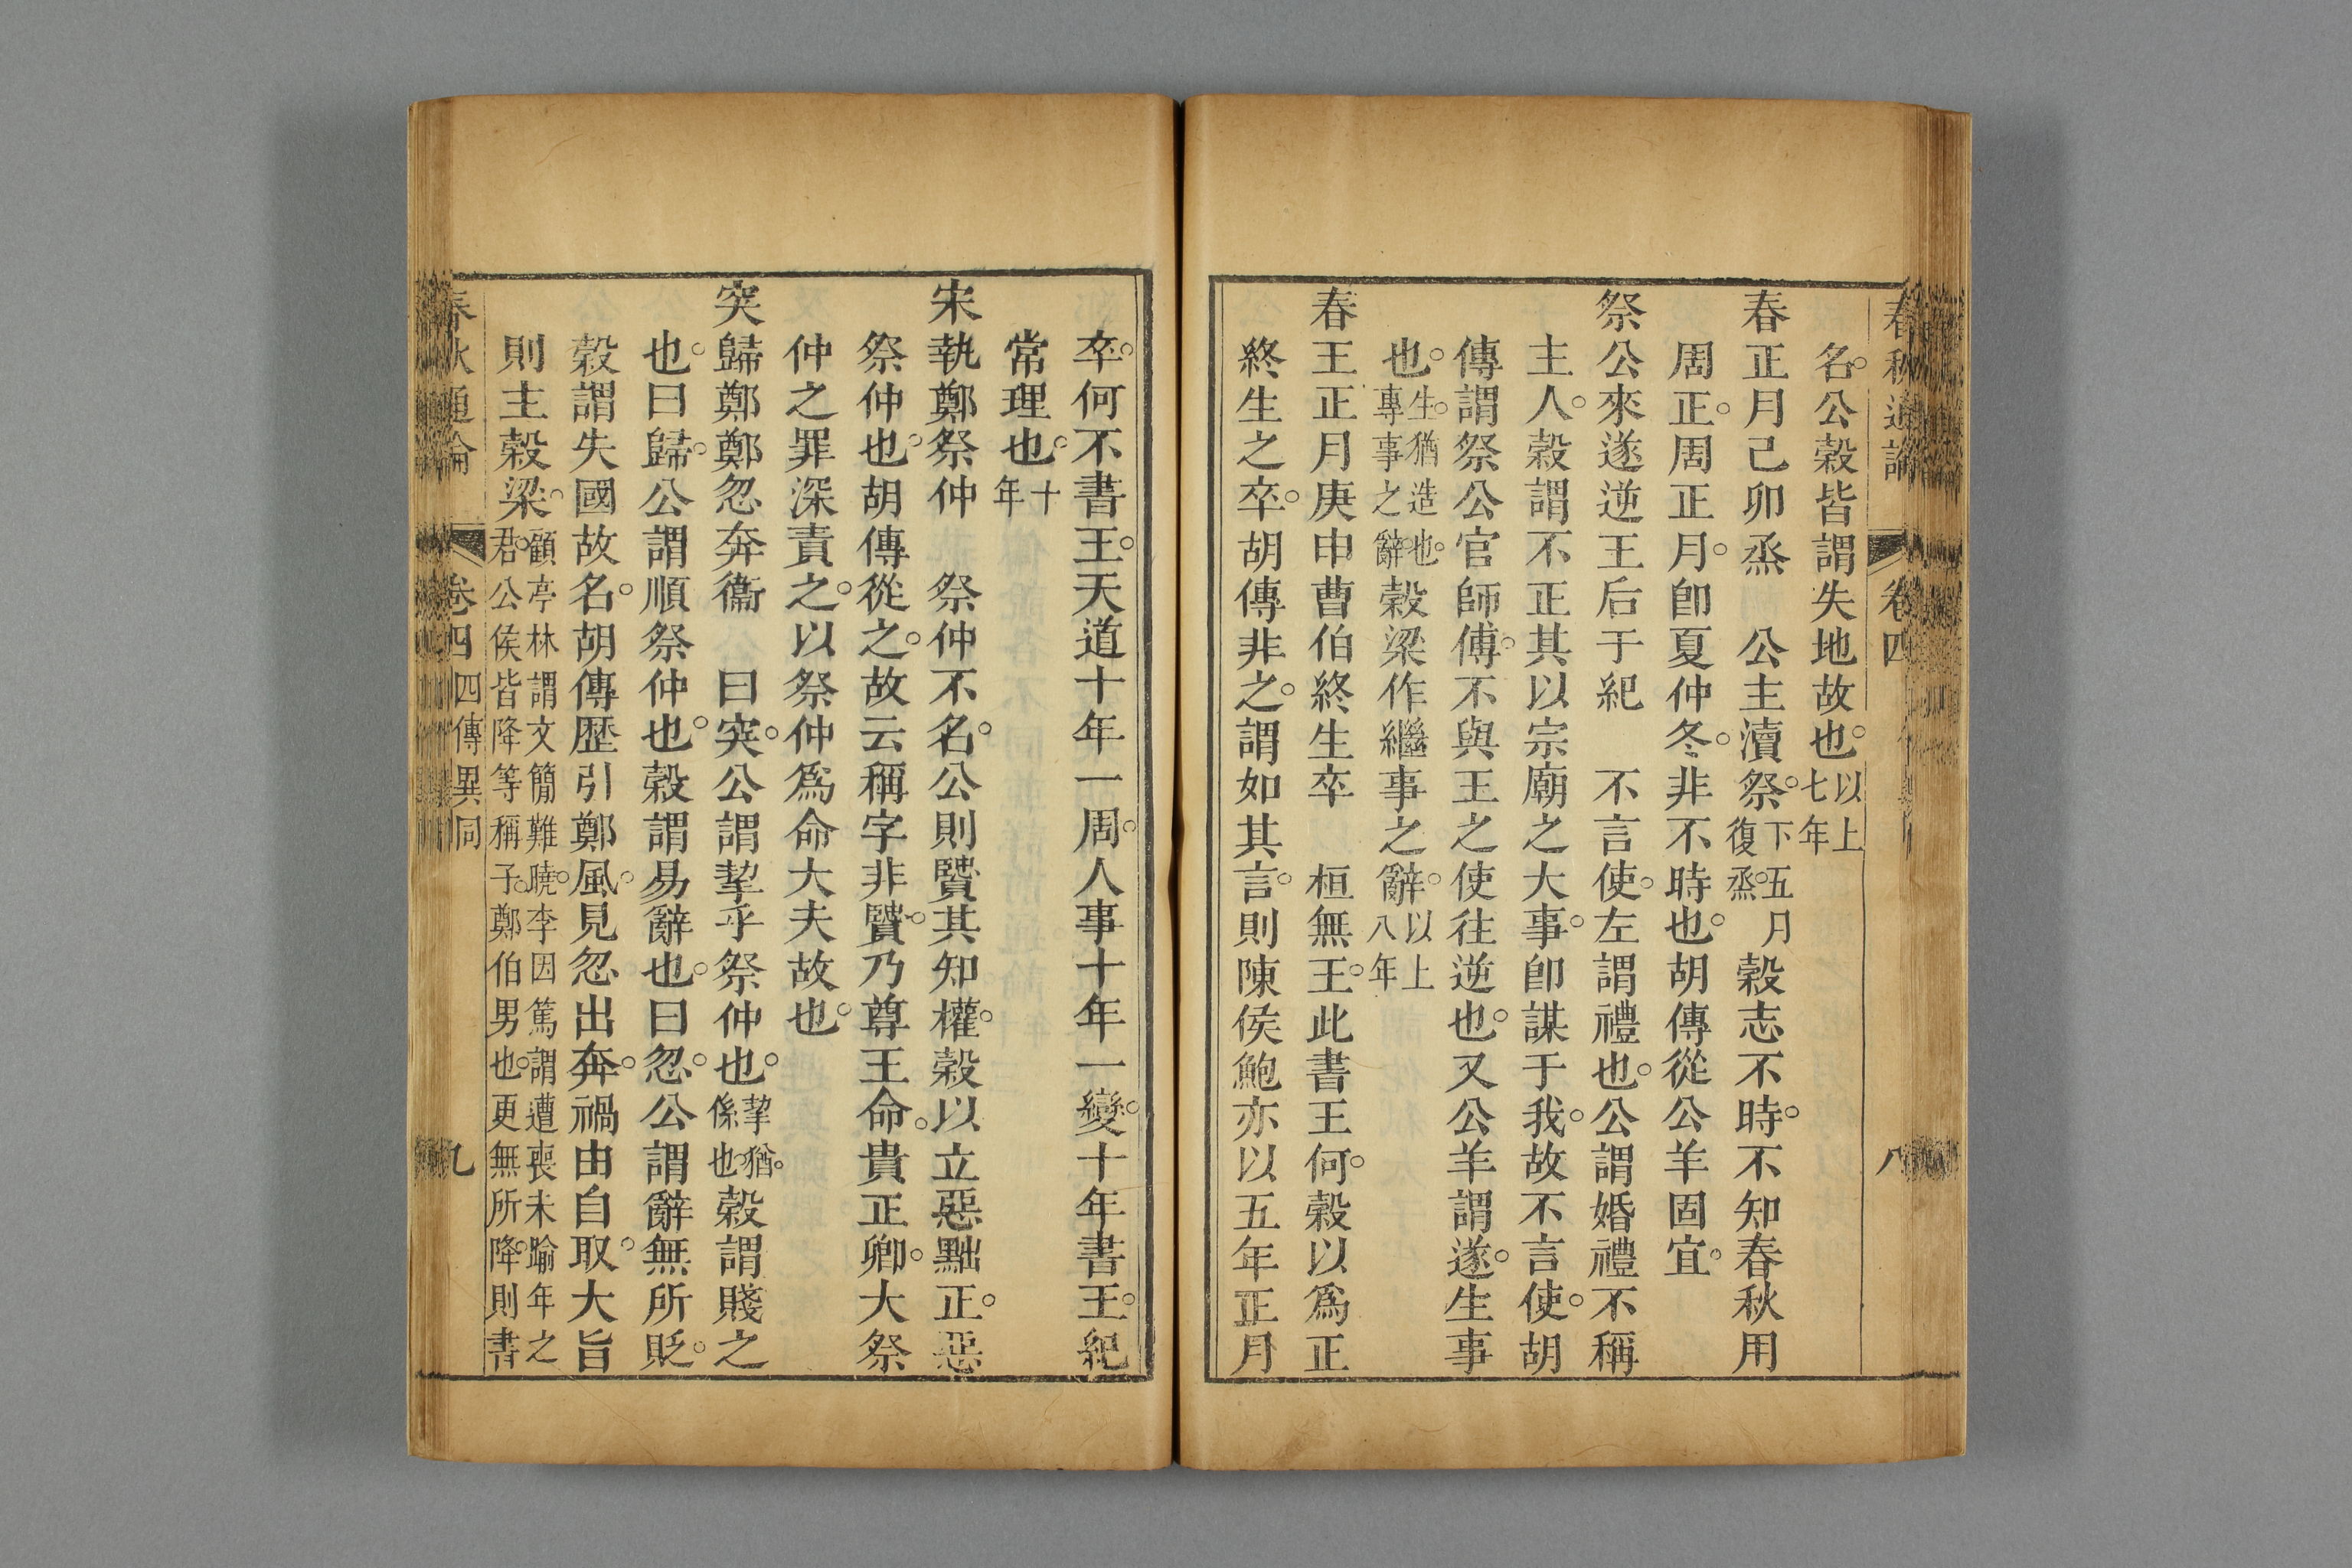 春秋通論 卷四 八
名公穀皆謂失地故也以上七年
春正月己卯烝 公主瀆祭下五月復烝穀志不時不知春秋用
周正周正月卽夏仲冬非不時也胡傳從公羊固宜
祭公來遂逆王后于紀 不言使左謂禮也公謂婚禮不稱
主人穀謂不正其以宗廟之大事卽謀于我故不言使胡
傳謂祭公官師傅不與王之使往逆也又公羊謂遂生事
也生猶造也專事之辭穀梁作繼事之辭以上八年
春王正月庚申曹伯終生卒 桓無王此書王何穀以爲正
終生之卒胡傳非之謂如其言則陳侯鮑亦以五年正月
卒何不書王天道十年一周人事十年一變十年書王紀
常理也十年
宋執鄭祭仲 祭仲不名公則賢其知權穀以立惡黜正惡
祭仲也胡傳從之故云稱字非賢乃尊王命貴正卿大祭
仲之罪深責之以祭仲爲命大夫故也
突歸鄭鄭忽奔衞 曰突公謂挈乎祭仲也挈猶係也穀謂賤之
也曰歸公謂順祭仲也穀謂易辭也曰忽公謂辭無所貶
穀謂失國故名胡傳歷引鄭風見忽出奔禍由自取大旨
則主穀梁顧亭林謂文簡難曉李因篤謂遭喪未踰年之君公侯皆降等稱子鄭伯男也更無所降則書
春秋通論 卷四 四傳異同 九